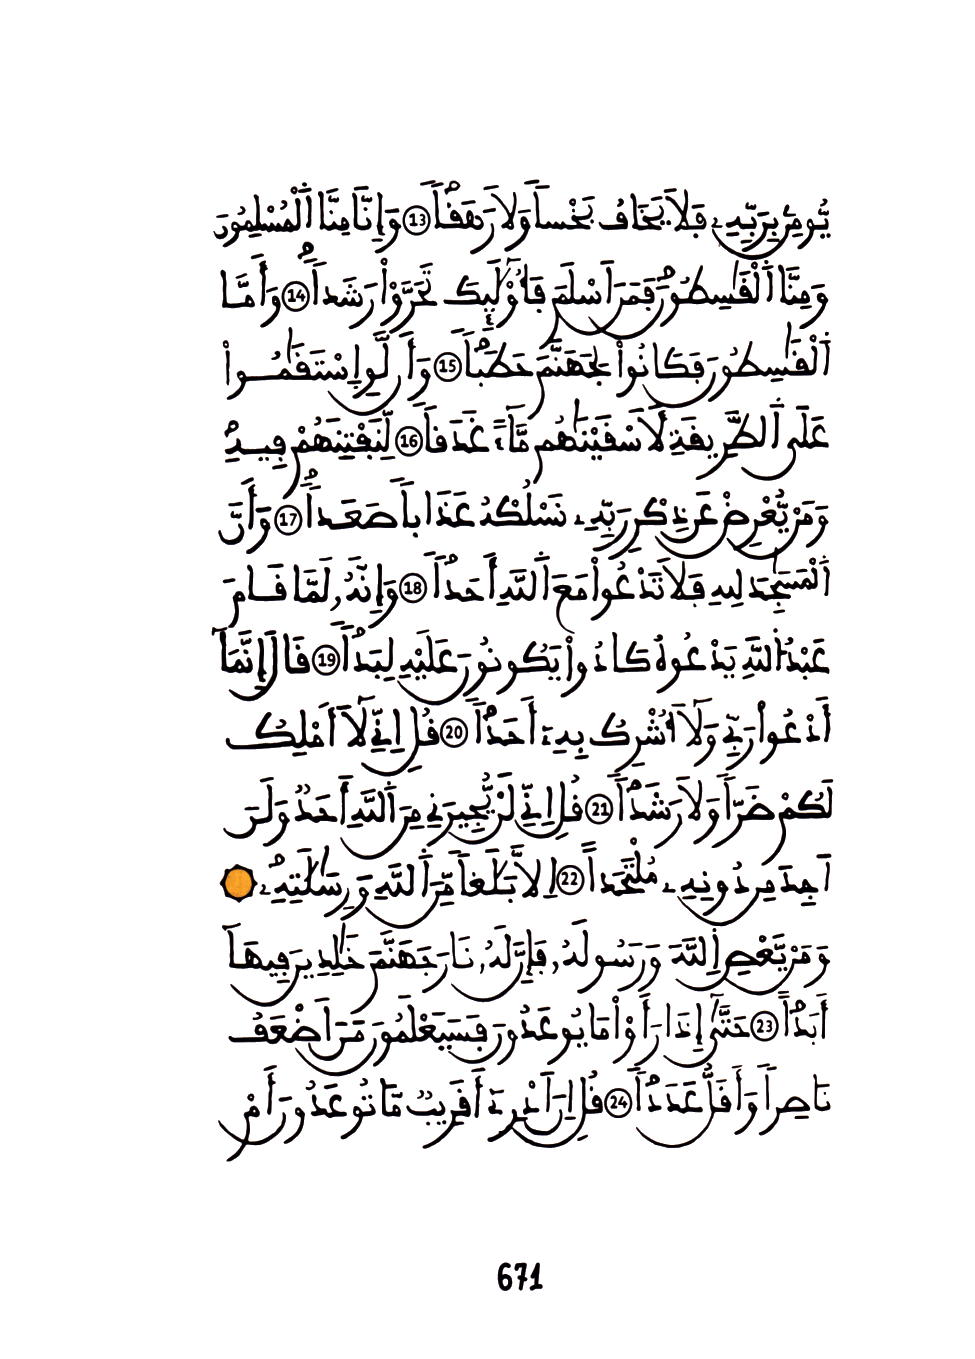 يُّومِنۢ بِرَبِّهِۦ فَلَا يَخَافُ بَخْساً وَلَا رَهَقاً 13 وَإِنَّا مِنَّا اَ۬لْمُسْلِمُونَ
وَمِنَّا اَ۬لْقَٰسِطُونَۖ فَمَنَ اَسْلَمَ فَأُوْلَٰٓئِكَ تَحَرَّوْاْ رَشَداٗۖ 14 وَأَمَّا
اَ۬لْقَٰسِطُونَ فَكَانُواْ لِجَهَنَّمَ حَطَباٗۖ 15 وَأَن لَّوِ اِسْتَقَٰمُواْ
عَلَى اَ۬لطَّرِيقَةِ لَأَسْقَيْنَٰهُم مَّآءً غَدَقاً 16 لِّنَفْتِنَهُمْ فِيهِۖ
وَمَنْ يُّعْرِضْ عَن ذِكْرِ رَبِّهِۦ نَسْلُكْهُ عَذَاباً صَعَداٗۖ 17 وَأَنَّ
اَ۬لْمَسَٰجِدَ لِلهِ فَلَا تَدْعُواْ مَعَ اَ۬للَّهِ أَحَداٗۖ 18 وَإِنَّهُۥ لَمَّا قَامَ
عَبْدُ اُ۬للَّهِ يَدْعُوهُ كَادُواْ يَكُونُونَ عَلَيْهِ لِبَداٗۖ 19 قَالَ إِنَّمَآ
أَدْعُواْ رَبِّے وَلَآ أُشْرِكُ بِهِۦٓ أَحَداٗۖ 20 قُلِ اِنِّے لَآ أَمْلِكُ
لَكُمْ ضَرّاً وَلَا رَشَداٗۖ 21 قُلِ اِنِّے لَنْ يُّجِيرَنِے مِنَ اَ۬للَّهِ أَحَدٌ وَلَنَ
اَجِدَ مِن دُونِهِۦ مُلْتَحَداً 22 اِلَّا بَلَٰغاً مِّنَ اَ۬للَّهِ وَرِسَٰلَٰتِهِۦۖ
وَمَنْ يَّعْصِ اِ۬للَّهَ وَرَسُولَهُۥ فَإِنَّ لَهُۥ نَارَ جَهَنَّمَ خَٰلِدِينَ فِيهَآ
أَبَداً 23 حَتَّىٰٓ إِذَا رَأَوْاْ مَا يُوعَدُونَ فَسَيَعْلَمُونَ مَنَ اَضْعَفُ
نَاصِراً وَأَقَلُّ عَدَداٗۖ 24 قُلِ اِنَ اَدْرِےٓ أَقَرِيبٌ مَّا تُوعَدُونَ أَمْ
671